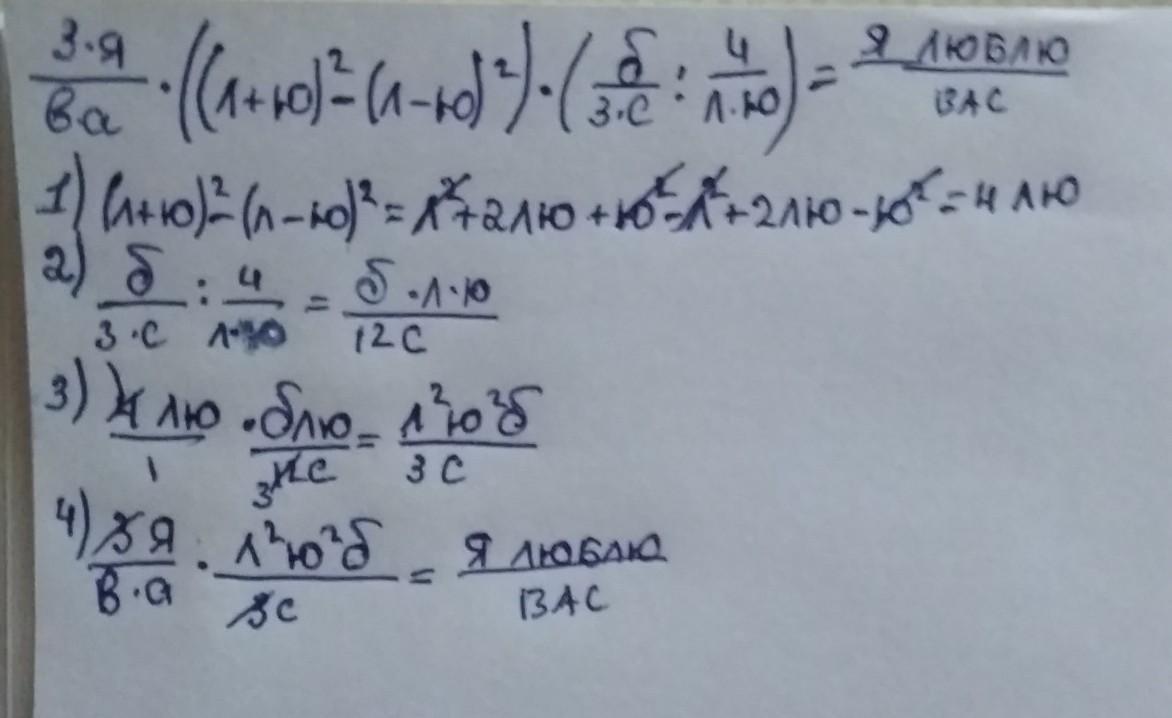 3·я/в·а · ((л+ю)²-(л-ю)²) · (б/3·с : 4/л·ю) = Я ЛЮБЛЮ/ВАС
1) (л+ю)²-(л-ю)² = л²+2лю+ю²-л²+2лю-ю² = 4лю
2) б/3·с : 4/л·ю = б·л·ю/12с
3) 4лю/1 · блю/12с 3 = л²ю²б/3с
4) 3Я/в·а · л²ю²б/3с = Я ЛЮБЛЮ/ВАС